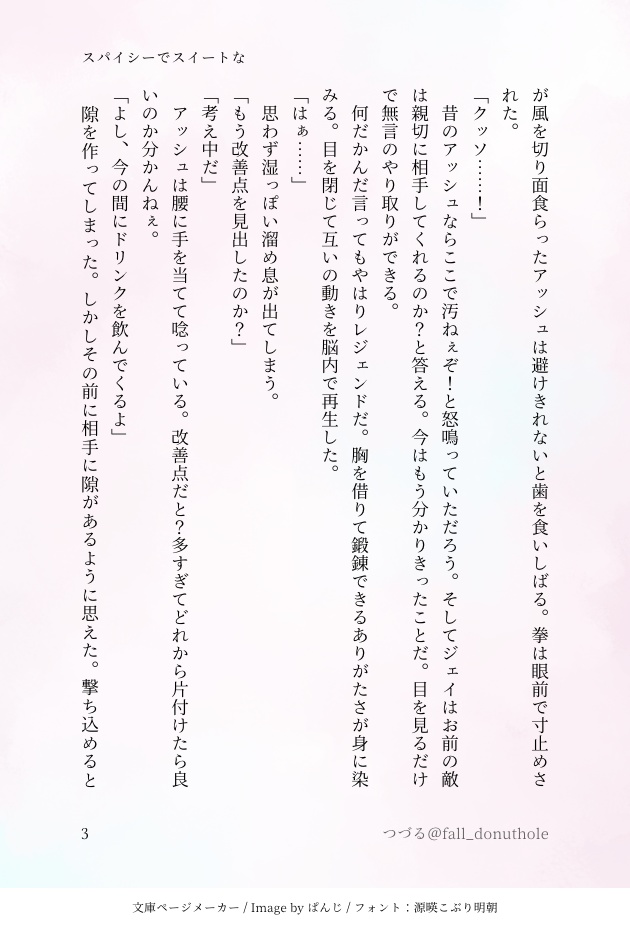 スパイシーでスイートな
が風を切り面食らったアッシュは避けきれないと歯を食いしばる。拳は眼前で寸止めさ
れた。
「クッソ……！」
昔のアッシュならここで汚ねぇぞ！と怒鳴っていただろう。そしてジェイはお前の敵
は親切に相手してくれるのか？と答える。今はもう分かりきったことだ。目を見るだけ
で無言のやり取りができる。
何だかんだ言ってもやはりレジェンドだ。胸を借りて鍛錬できるありがたさが身に染
みる。目を閉じて互いの動きを脳内で再生した。
「はぁ……」
思わず湿っぽい溜め息が出てしまう。
「もう改善点を見出したのか？」
「考え中だ」
アッシュは腰に手を当てて唸っている。改善点だと？多すぎてどれから片付けたら良
いのか分かんねぇ。
「よし、今の間にドリンクを飲んでくるよ」
隙を作ってしまった。しかしその前に相手に隙があるように思えた。撃ち込めると
3
つづる＠fall_donuthole
文庫ページメーカー / Image by ぱんじ / フォント：源暎こぶり明朝